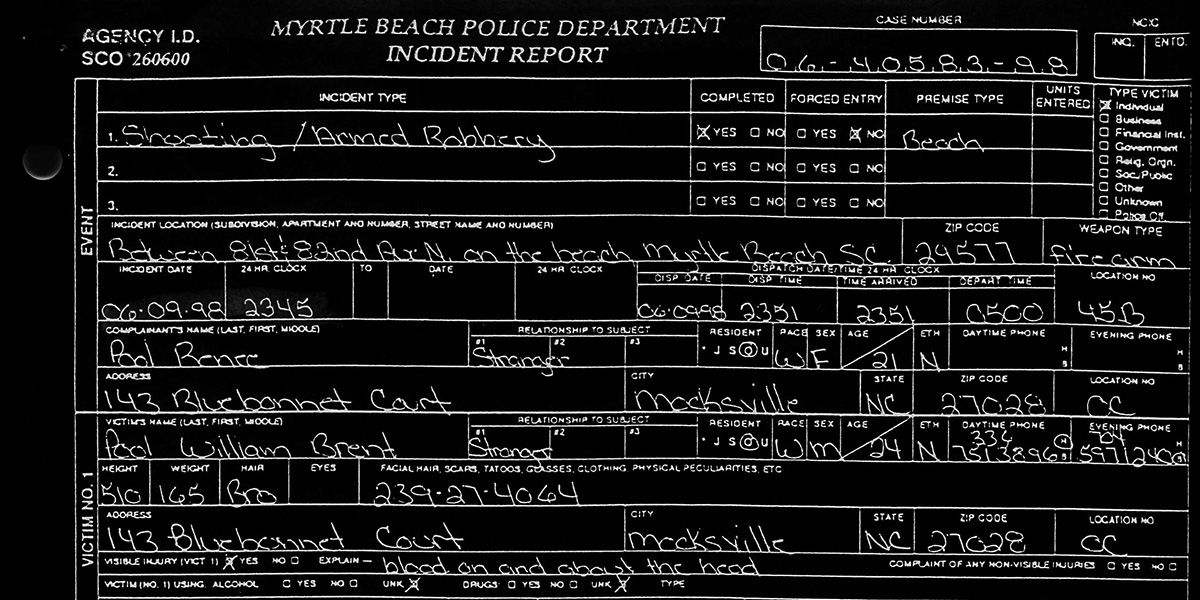 AGENCY I.D.
SCO 260600
MYRTLE BEACH POLICE DEPARTMENT
INCIDENT REPORT
CASE NUMBER
06-40583-98
NCIC
INQ. ENTD.
INCIDENT TYPE COMPLETED FORCED ENTRY PREMISE TYPE UNITS ENTERED TYPE VICTIM
1. Shooting / Armed Robbery ☒ YES ☐ NO ☐ YES ☒ NO Beach
2. ☐ YES ☐ NO ☐ YES ☐ NO
3. ☐ YES ☐ NO ☐ YES ☐ NO
☒ Individual
☐ Business
☐ Financial Inst.
☐ Government
☐ Relig. Orgn.
☐ Soc. Public
☐ Other
☐ Unknown
☐ Police Off
EVENT
INCIDENT LOCATION (SUBDIVISION, APARTMENT AND NUMBER, STREET NAME AND NUMBER) ZIP CODE WEAPON TYPE
Between 81st & 82nd Ave N. on the beach Myrtle Beach S.C. 29577 Firearm
INCIDENT DATE 24 HR CLOCK TO DATE 24 HR CLOCK DISPATCH DATE/TIME 24 HR CLOCK LOCATION NO
DISP DATE DISP TIME TIME ARRIVED DEPART TIME
06-09-98 2345 06-09-98 2351 2351 0500 45B
COMPLAINANT'S NAME (LAST, FIRST, MIDDLE) RELATIONSHIP TO SUBJECT RESIDENT RACE SEX AGE ETH DAYTIME PHONE EVENING PHONE
#1 #2 #3 J S O U H B H B
Pool Renee Stranger W F 21 N
ADDRESS CITY STATE ZIP CODE LOCATION NO
143 Bluebonnet Court Mocksville NC 27028 CC
VICTIM NO. 1
VICTIM'S NAME (LAST, FIRST, MIDDLE) RELATIONSHIP TO SUBJECT RESIDENT RACE SEX AGE ETH DAYTIME PHONE EVENING PHONE
#1 #2 #3 J S O U
Pool William Brent Stranger W M 24 N
HEIGHT WEIGHT HAIR EYES FACIAL HAIR, SCARS, TATOOS, GLASSES, CLOTHING, PHYSICAL PECULIARITIES, ETC
510 165 Bro 239-27-4064
ADDRESS CITY STATE ZIP CODE LOCATION NO
143 Bluebonnet Court Mocksville NC 27028 CC
VISIBLE INJURY (VICT 1) ☒ YES NO ☐ EXPLAIN - blood on and about the head COMPLAINT OF ANY NON-VISIBLE INJURIES ☐ YES NO ☐
VICTIM (NO. 1) USING: ALCOHOL ☐ YES NO ☐ UNK ☒ DRUGS: ☐ YES NO ☐ UNK ☒ TYPE